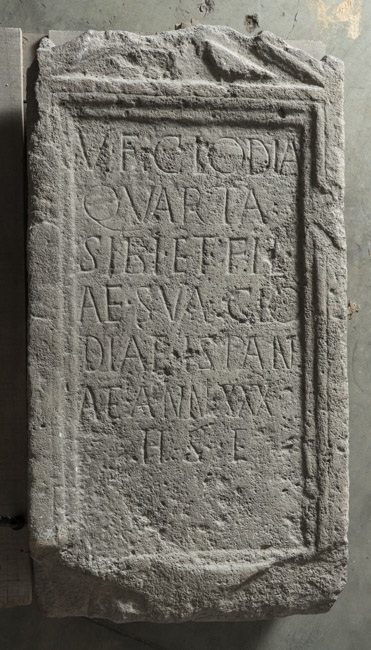 V·F·CLODIA
QVARTA·
SIBI·ET·FIL
AE·SVA·CLO
DIAE·ISPAN
AE·ANN·XXX
H·S·E